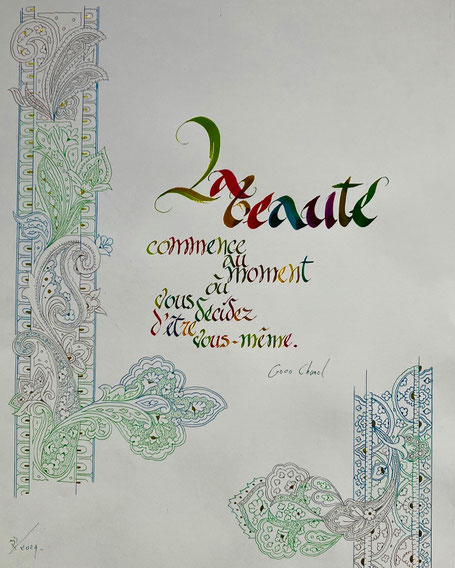 La
beauté
commence
au
moment
où
vous décidez
d'être
vous-même.
Coco Chanel